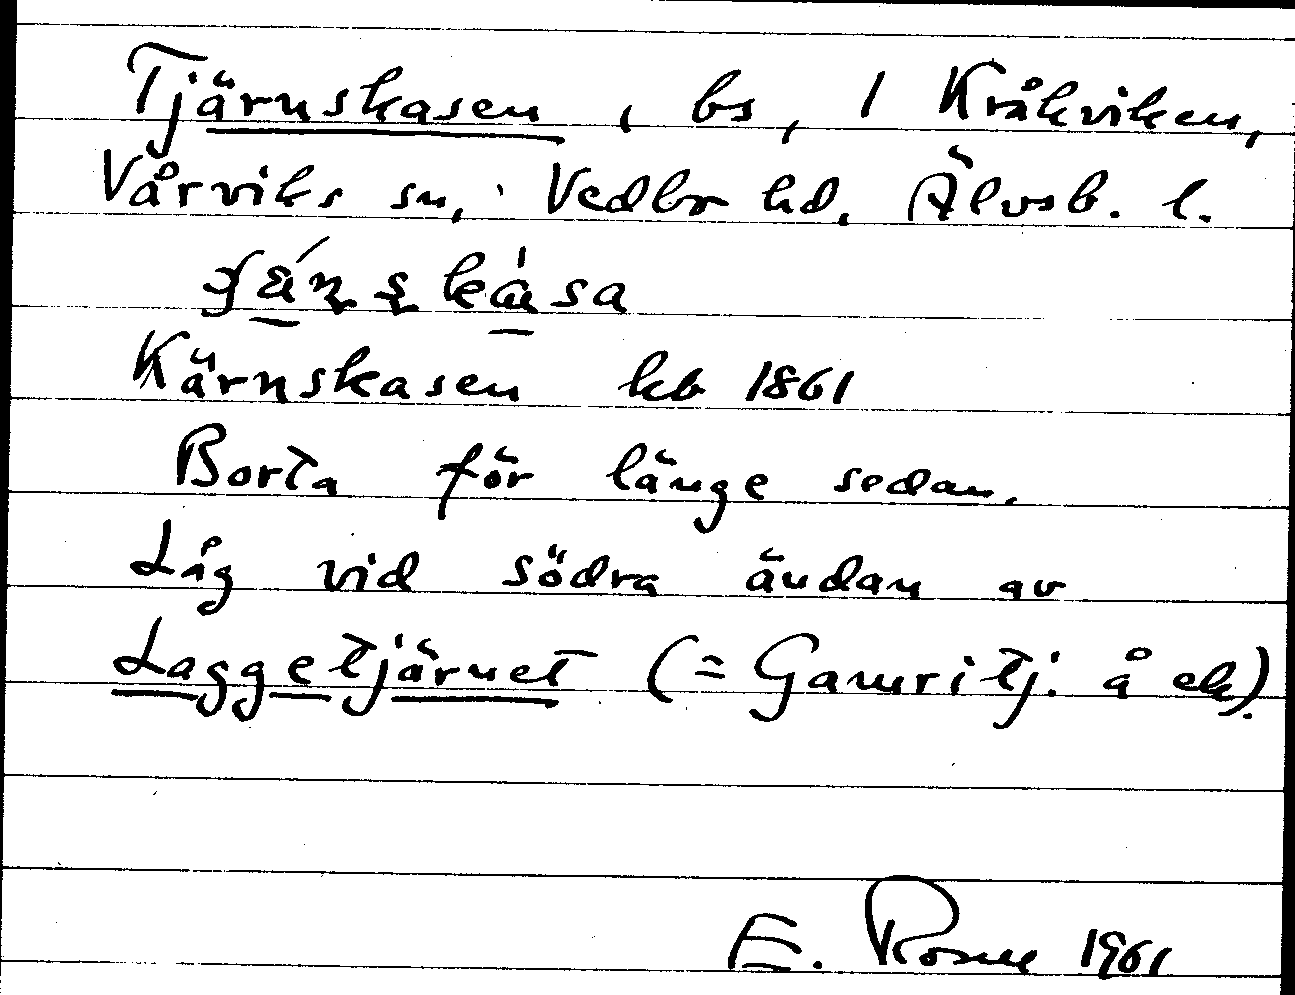 Tjärnskasen, bs, 1 Kråkviken,
Vårviks sn, Vedbo hd. Älvsb. l.
Kärnskasen kb 1861
Borta för länge sedan.
Låg vid södra ändan av
Laggetjärnet (= Gamritj. å ek).
E. 1961